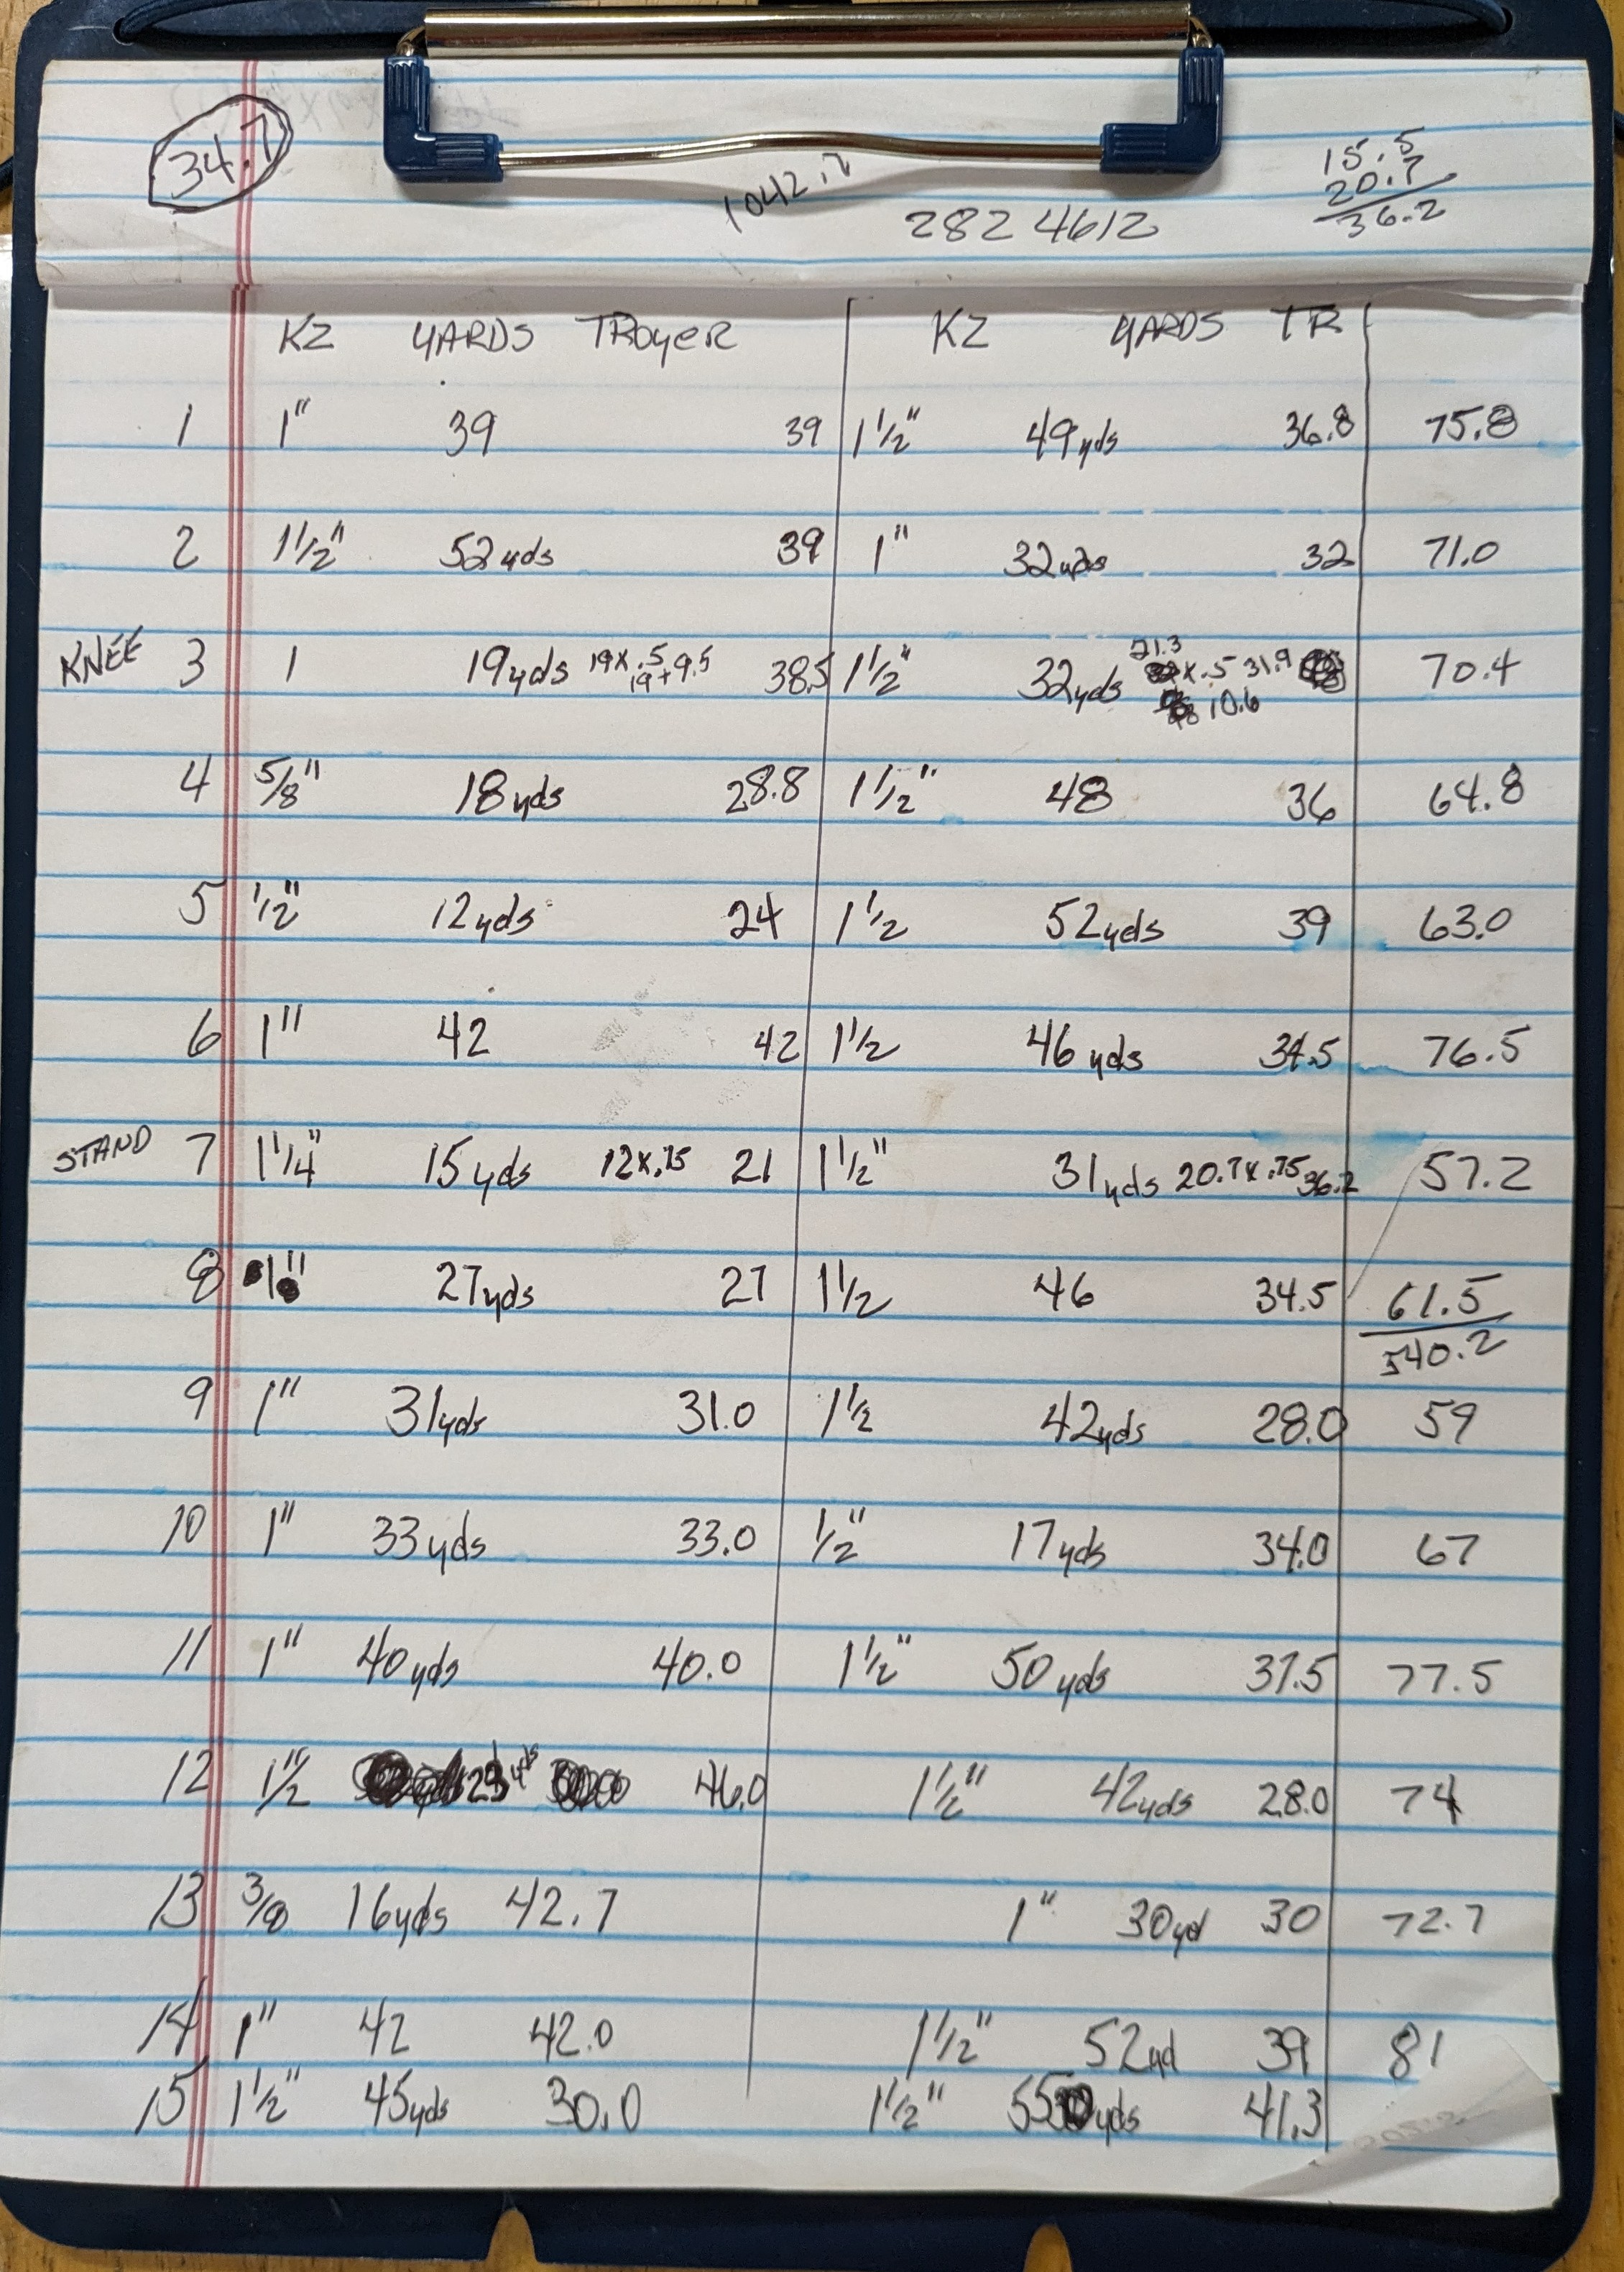 34.7
1042.2
2824612
15.5
20.7
36.2
KZ YARDS TROYER KZ YARDS TR
1 1" 39 39 1 1/2" 49yds 36.8 75.8
2 1 1/2" 52yds 39 1" 32yds 32 71.0
KNEE 3 1 19yds 19x.5 38.5 1 1/2" 32yds 21.3 x.5 31.9 70.4
19+9.5 10.6
4 5/8" 18yds 28.8 1 1/2" 48 36 64.8
5 1/2" 12yds 24 1 1/2 52yds 39 63.0
6 1" 42 42 1 1/2 46 yds 34.5 76.5
STAND 7 1 1/4" 15yds 12x.75 21 1 1/2" 31yds 20.7x.75 36.2 57.2
8 1" 27yds 27 1 1/2 46 34.5 61.5
540.2
9 1" 31yds 31.0 1 1/2 42yds 28.0 59
10 1" 33yds 33.0 1/2" 17yds 34.0 67
11 1" 40yds 40.0 1 1/2" 50yds 37.5 77.5
12 1 1/2" 23yds 46.0 1 1/2" 42yds 28.0 74
13 3/8 16yds 42.7 1" 30yd 30 72.7
14 1" 42 42.0 1 1/2" 52yd 39 81
15 1 1/2" 45yds 30.0 1 1/2" 55yds 41.3